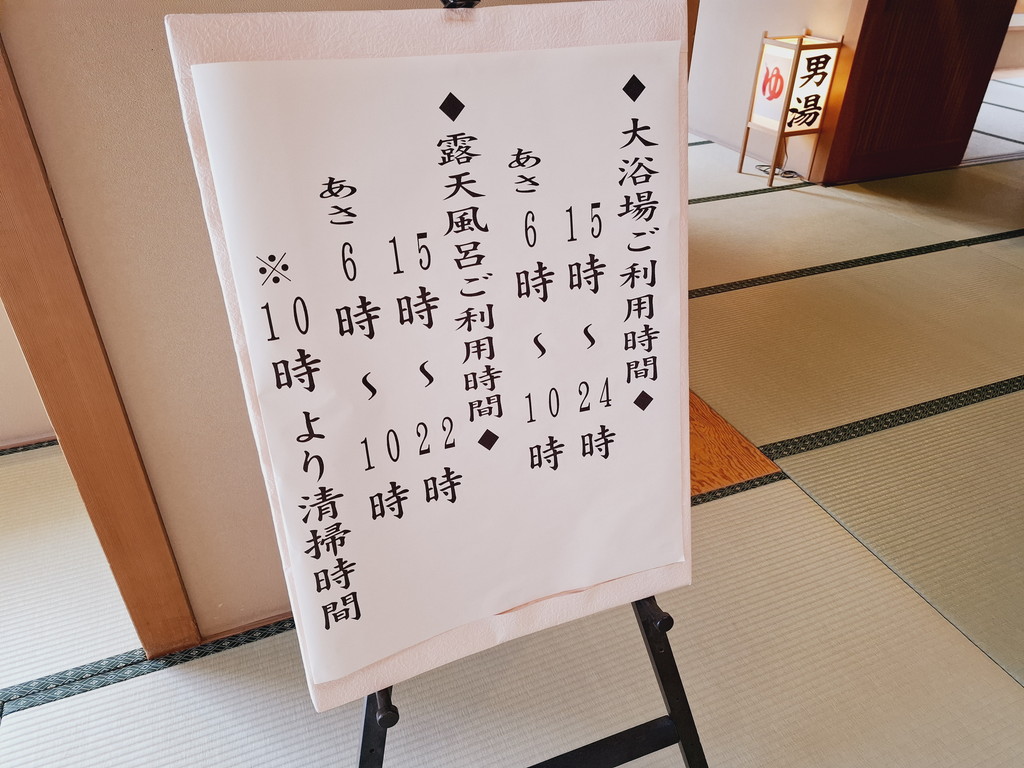 ◆大浴場ご利用時間◆
15時～24時
あさ6時～10時
◆露天風呂ご利用時間◆
15時～22時
あさ6時～10時
※10時より清掃時間
男湯
ゆ